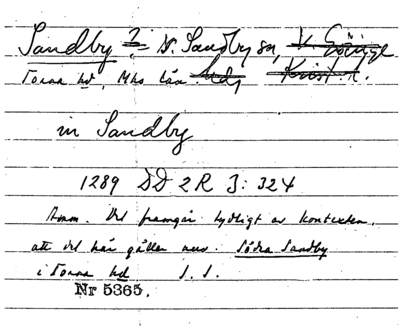 Sandby ? S. Sandby sn, V. Göinge
Torna hd, Mhs län. hd, Krist. l.
in Sandby
1289 DD 2R 3: 324
Anm. Det framgår tydligt av kontexten,
att det här gäller nuv. Södra Sandby
i Torna hd
Nr 5365.